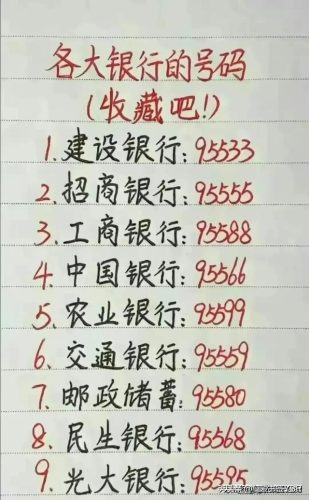 各大银行的号码
(收藏吧!)
1.建设银行:95533
2.招商银行:95555
3.工商银行:95588
4.中国银行:95566
5.农业银行:95599
6.交通银行:95559
7.邮政储蓄:95580
8.民生银行:95568
9.光大银行:95595